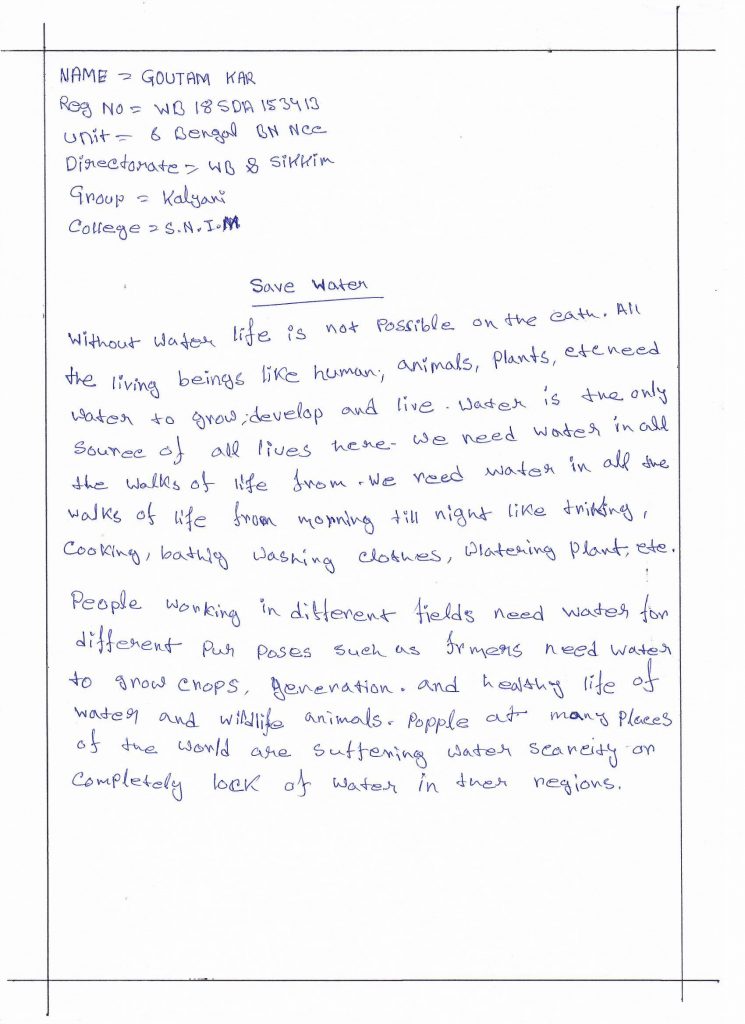 NAME = GOUTAM KAR
Reg No = WB 18 SDA 153413
Unit = 6 Bengal BN NCC
Directorate = WB & SIKKIM
Group = Kalyani
College = S.N.I.M
Save Water
Without water life is not possible on the eath. All
the living beings like human, animals, plants, etc need
water to grow, develop and live. Water is the only
source of all lives here- we need water in all
the walks of life from. We need water in all the
walks of life from morning till night like trinking,
Cooking, bathig washing clothes, Watering plant, etc.
People working in different fields need water for
different pur poses such as frmers need water
to grow crops, generation. and healthy life of
water and wildlife animals. Popple at many places
of the world are suffering water scarcity or
completely lock of water in ther regions.